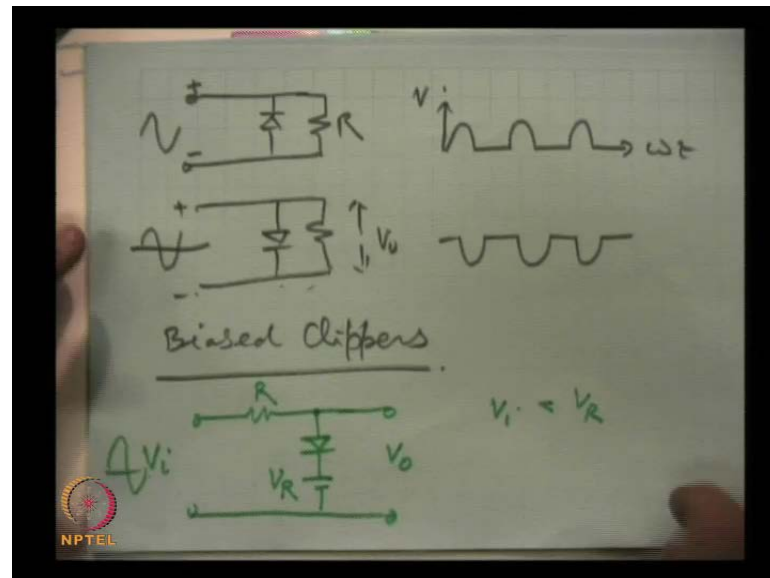 +
-
R
V
ωt
+
-
Vo
Biased Clippers
R
Vi
VR
Vo
Vi < VR
NPTEL